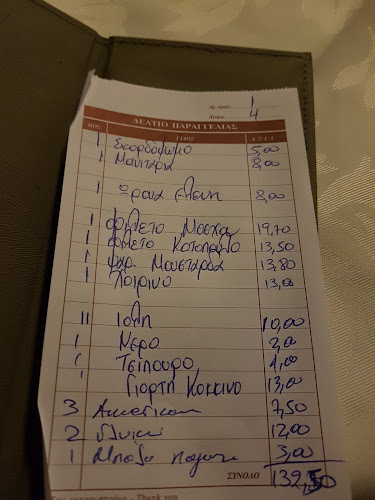 Αρ. τραπ.: 1
Άτομα: 4
ΔΕΛΤΙΟ ΠΑΡΑΓΓΕΛΙΑΣ
ΠΟΣ. ΕΙΔΟΣ ΑΞΙΑ
1 Σκορδόψωμο 5,00
1 Μανιτάρια 8,00
1 Ωραία Ελένη 8,00
1 Φιλέτο Μοσχα 19,70
1 Φιλέτο Κοτόπουλο 13,50
1 Μουστάρδα 13,80
1 Χοιρινό 13,00
11 Ιόλη 10,00
1 Νερό 2,00
1 Τσίπουρο 4,00
1 Γιορτή Κόκκινο 13,00
3 7,50
2 Γλυκά 12,00
1 Μπάλα παγωτό 3,00
ΣΥΝΟΛΟ 132,50
Thank you